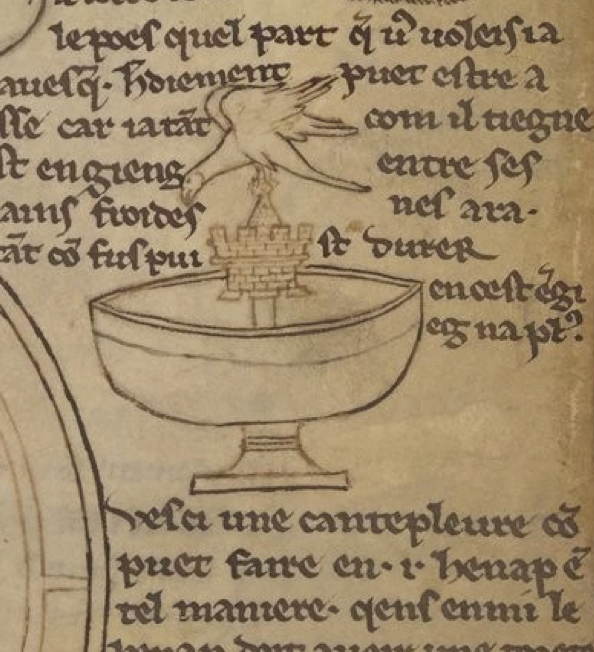 le poes quel part q̃ tu uoleis ia
auesq̃· hdiement puet estre a
sse car ia tãt com il tiegne
st en gieng entre ses
ains froides nes ara·
tãt cõ fus pui st durer
en cest ẽgi
eg na pl⁹·
Vesci une cantepleure cõ
puet faire en· i· henap ẽ
tel maniere· qens enmi le